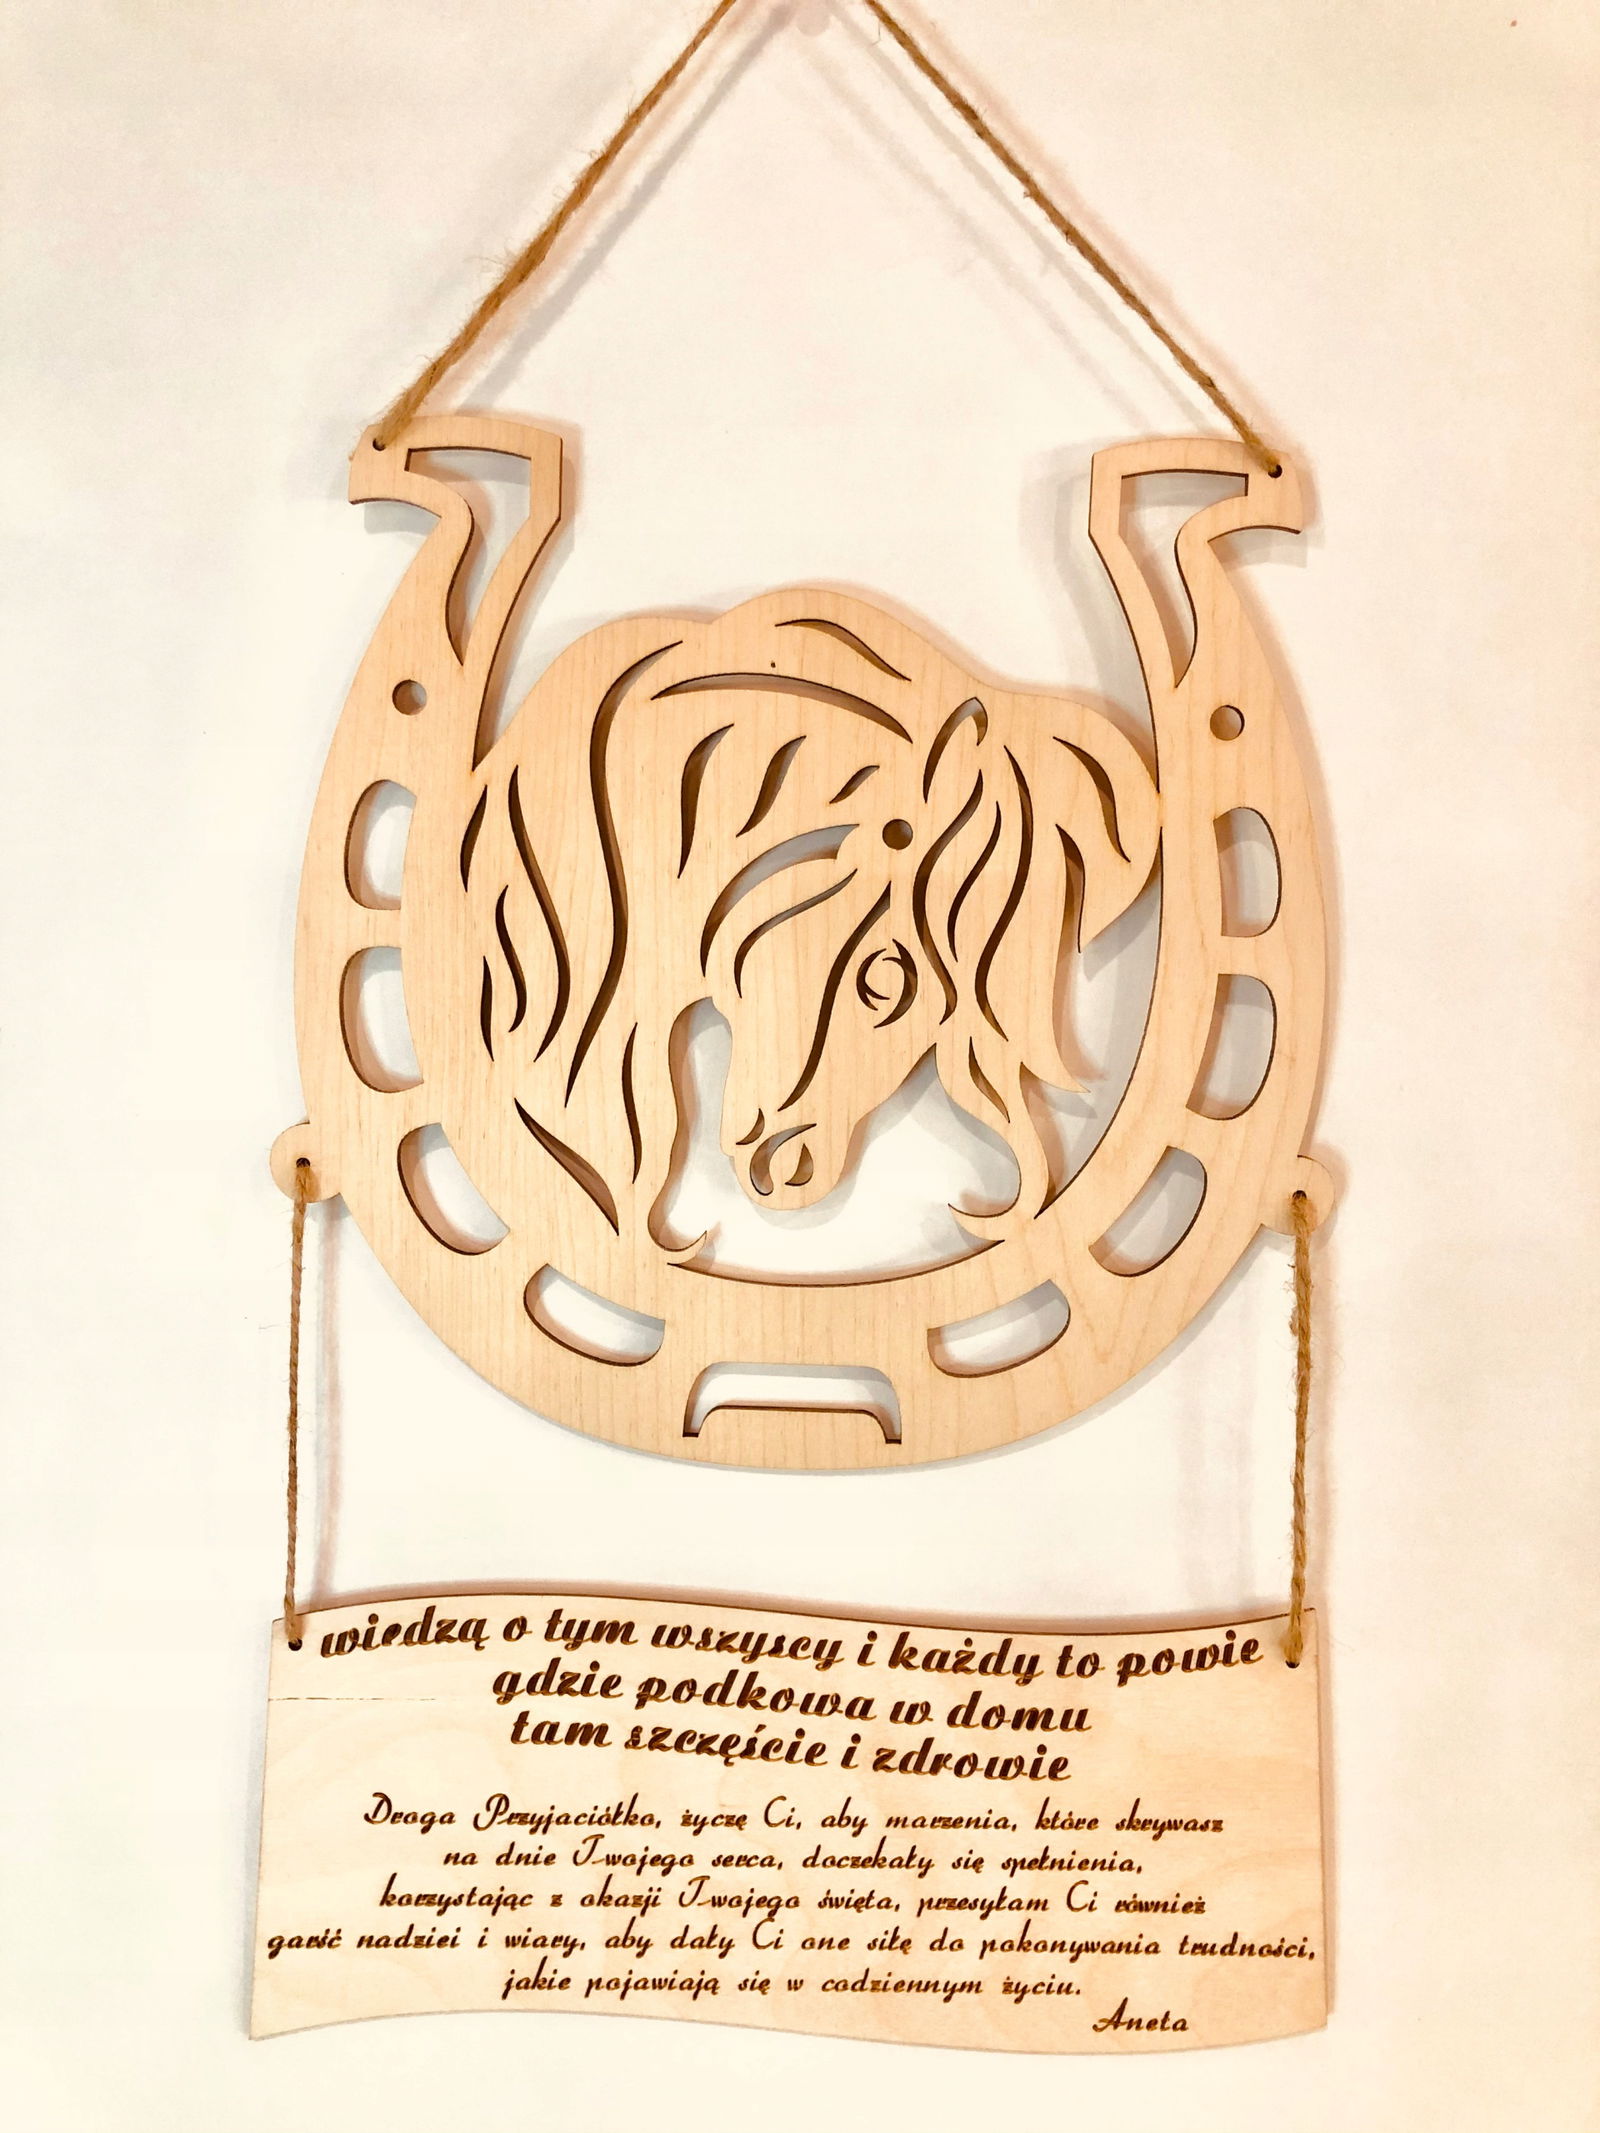 wiedzą o tym wszyscy i każdy to powie
gdzie podkowa w domu
tam szczęście i zdrowie
Droga Przyjaciółko, życzę Ci, aby marzenia, które skrywasz
na dnie Twojego serca, doczekały się spełnienia,
korzystając z okazji Twojego święta, przesyłam Ci również
garść nadziei i wiary, aby dały Ci one siłę do pokonywania trudności,
jakie pojawiają się w codziennym życiu.
Aneta